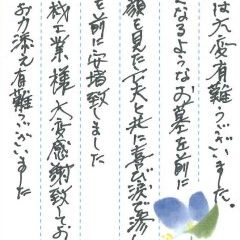 は大変有難うございました。
になるようなお墓を前に
顔を見た丶夫と共に喜び涙で滲
を前に安堵致しました
機工業様大変感謝致してお
お力添え有難うございました